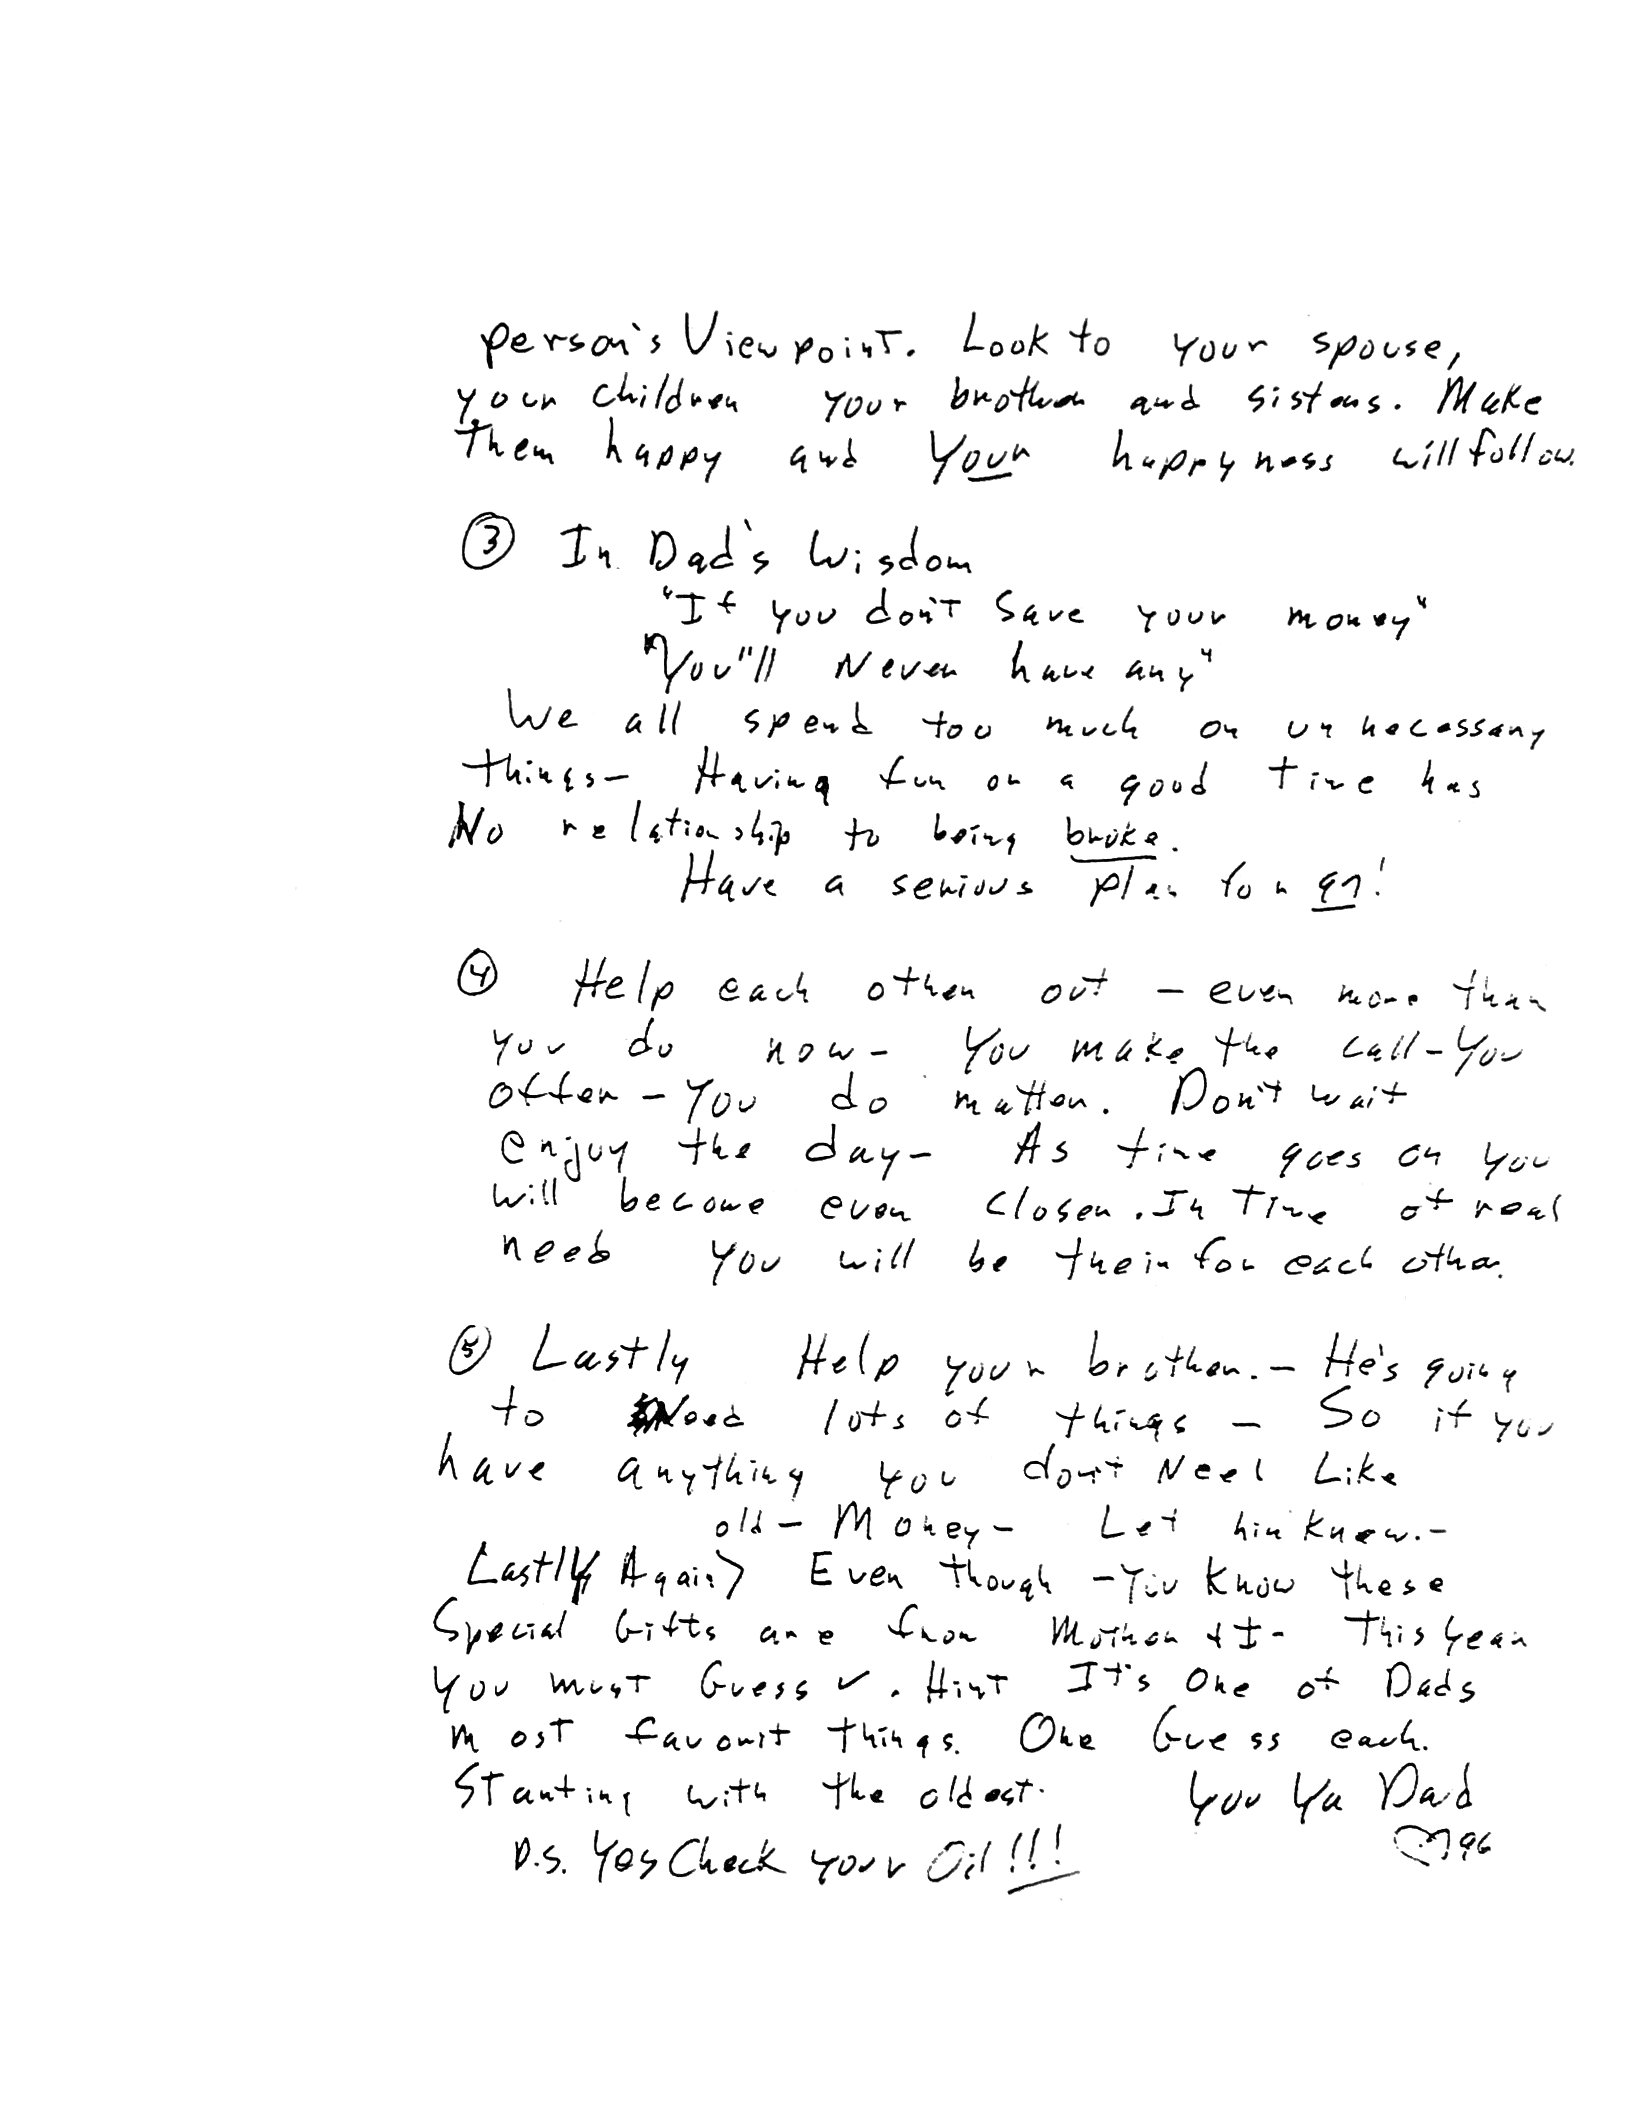 person's Viewpoint. Look to your spouse,
your children your brother and sisters. Make
Them happy and Your happyness will follow.
③ In Dad's Wisdom
"If you don't Save your money"
"You"ll Never have any"
We all spend too much on unnecessary
things- Having fun or a good Time has
No relationship to being broke.
Have a serious plan for 97!
④ Help each other out - even more than
you do now- You make the call-You
offer - You do matter. Don't wait
enjoy the day- As time goes on you
will become even closer. In Time of real
need you will be their for each other.
⑤ Lastly Help your brother. - He's going
to Need lots of things - So if you
have anything you don't Need Like
old - Money - Let him know. -
Lastly Again> Even though - You Know these
Special Gifts are from Mother & I - This year
You must Guess ✓. Hint It's One of Dads
most favorit Things. One Guess each.
Starting with the oldest. You Ya Dad
P.S. Yes Check your Oil!!! ♡ 96